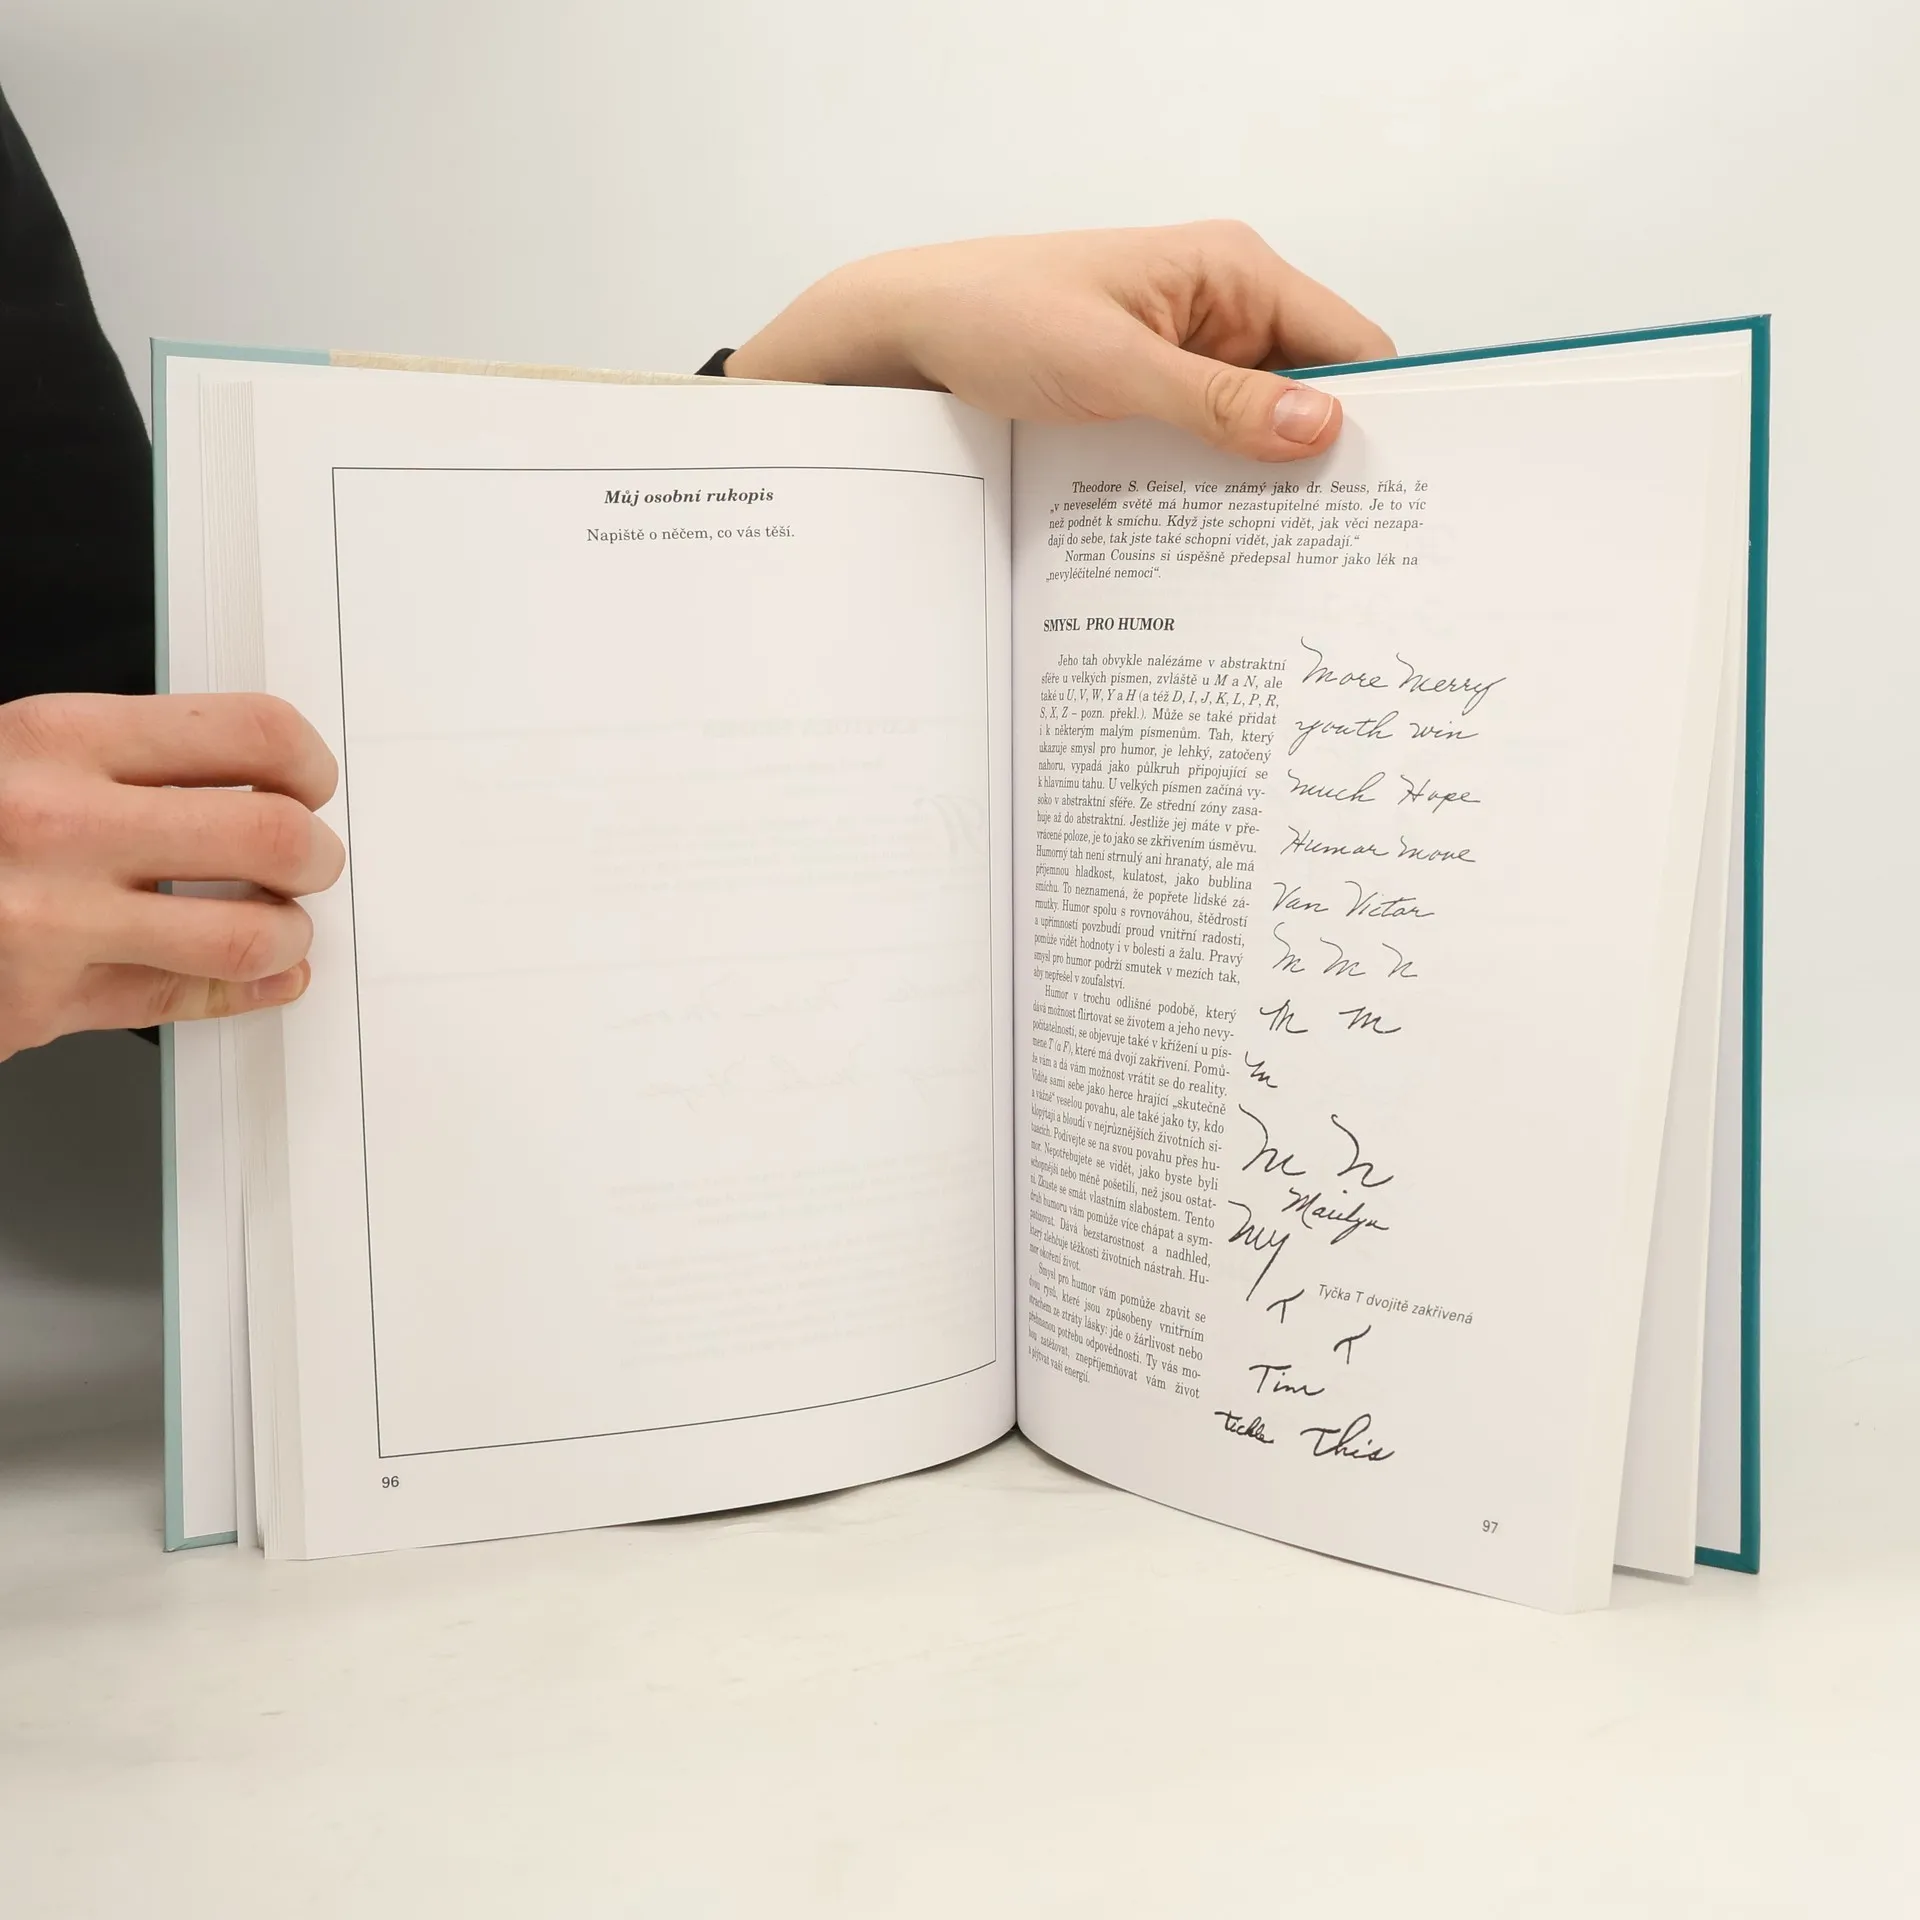 Můj osobní rukopis
Napiště o něčem, co vás těší.
96
Theodore S. Geisel, více známý jako dr. Seuss, říká, že
„v neveselém světě má humor nezastupitelné místo. Je to víc
než podnět k smíchu. Když jste schopni vidět, jak věci nezapa-
dají do sebe, tak jste také schopni vidět, jak zapadají.“
Norman Cousins si úspěšně předepsal humor jako lék na
„nevyléčitelné nemoci“.
SMYSL PRO HUMOR
Jeho tah obvykle nalézáme v abstraktní
sféře u velkých písmen, zvláště u M a N, ale
také u U, V, W, Y a H (a též D, I, J, K, L, P, R,
S, X, Z – pozn. překl.). Může se také přidat
i k některým malým písmenům. Tah, který
ukazuje smysl pro humor, je lehký, zatočený
nahoru, vypadá jako půlkruh připojující se
k hlavnímu tahu. U velkých písmen začíná vy-
soko v abstraktní sféře. Ze střední zóny zasa-
huje až do abstraktní. Jestliže jej máte v pře-
vrácené poloze, je to jako se zkřivením úsměvu.
Humorný tah není strnulý ani hranatý, ale má
příjemnou hladkost, kulatost, jako bublina
smíchu. To neznamená, že popřete lidské zá-
rmutky. Humor spolu s rovnováhou, štědrostí
a upřímností povzbudí proud vnitřní radosti,
pomůže vidět hodnoty i v bolesti a žalu. Pravý
smysl pro humor podrží smutek v mezích tak,
aby nepřešel v zoufalství.
Humor v trochu odlišné podobě, který
dává možnost flirtovat se životem a jeho nevy-
počitatelností, se objevuje také v křížení u pís-
mene T (a F), které má dvojí zakřivení. Pomů-
že vám a dá vám možnost vrátit se do reality.
Vidíte sami sebe jako herce hrající „skutečně
a vážně“ veselou povahu, ale také jako ty, kdo
klopýtají a bloudí v nejrůznějších životních si-
tuacích. Podívejte se na svou povahu přes hu-
mor. Nepotřebujete se vidět, jako byste byli
schopnější nebo méně pošetilí, než jsou ostat-
ní. Zkuste se smát vlastním slabostem. Tento
druh humoru vám pomůže více chápat a sym-
patizovat. Dává bezstarostnost a nadhled,
který zlehčuje těžkosti životních nástrah. Hu-
mor okoření život.
Smysl pro humor vám pomůže zbavit se
dvou rysů, které jsou způsobeny vnitřním
strachem ze ztráty lásky: jde o žárlivost nebo
přehnanou potřebu odpovědnosti. Ty vás mo-
hou zatěžovat, znepříjemňovat vám život
a plýtvat vaší energií.
More Merry
youth win
much Hope
Humor move
Van Victor
M M N
M M
m
M N
Marilyn
My
T Tyčka T dvojitě zakřivená
T
Tim
tickle This
97